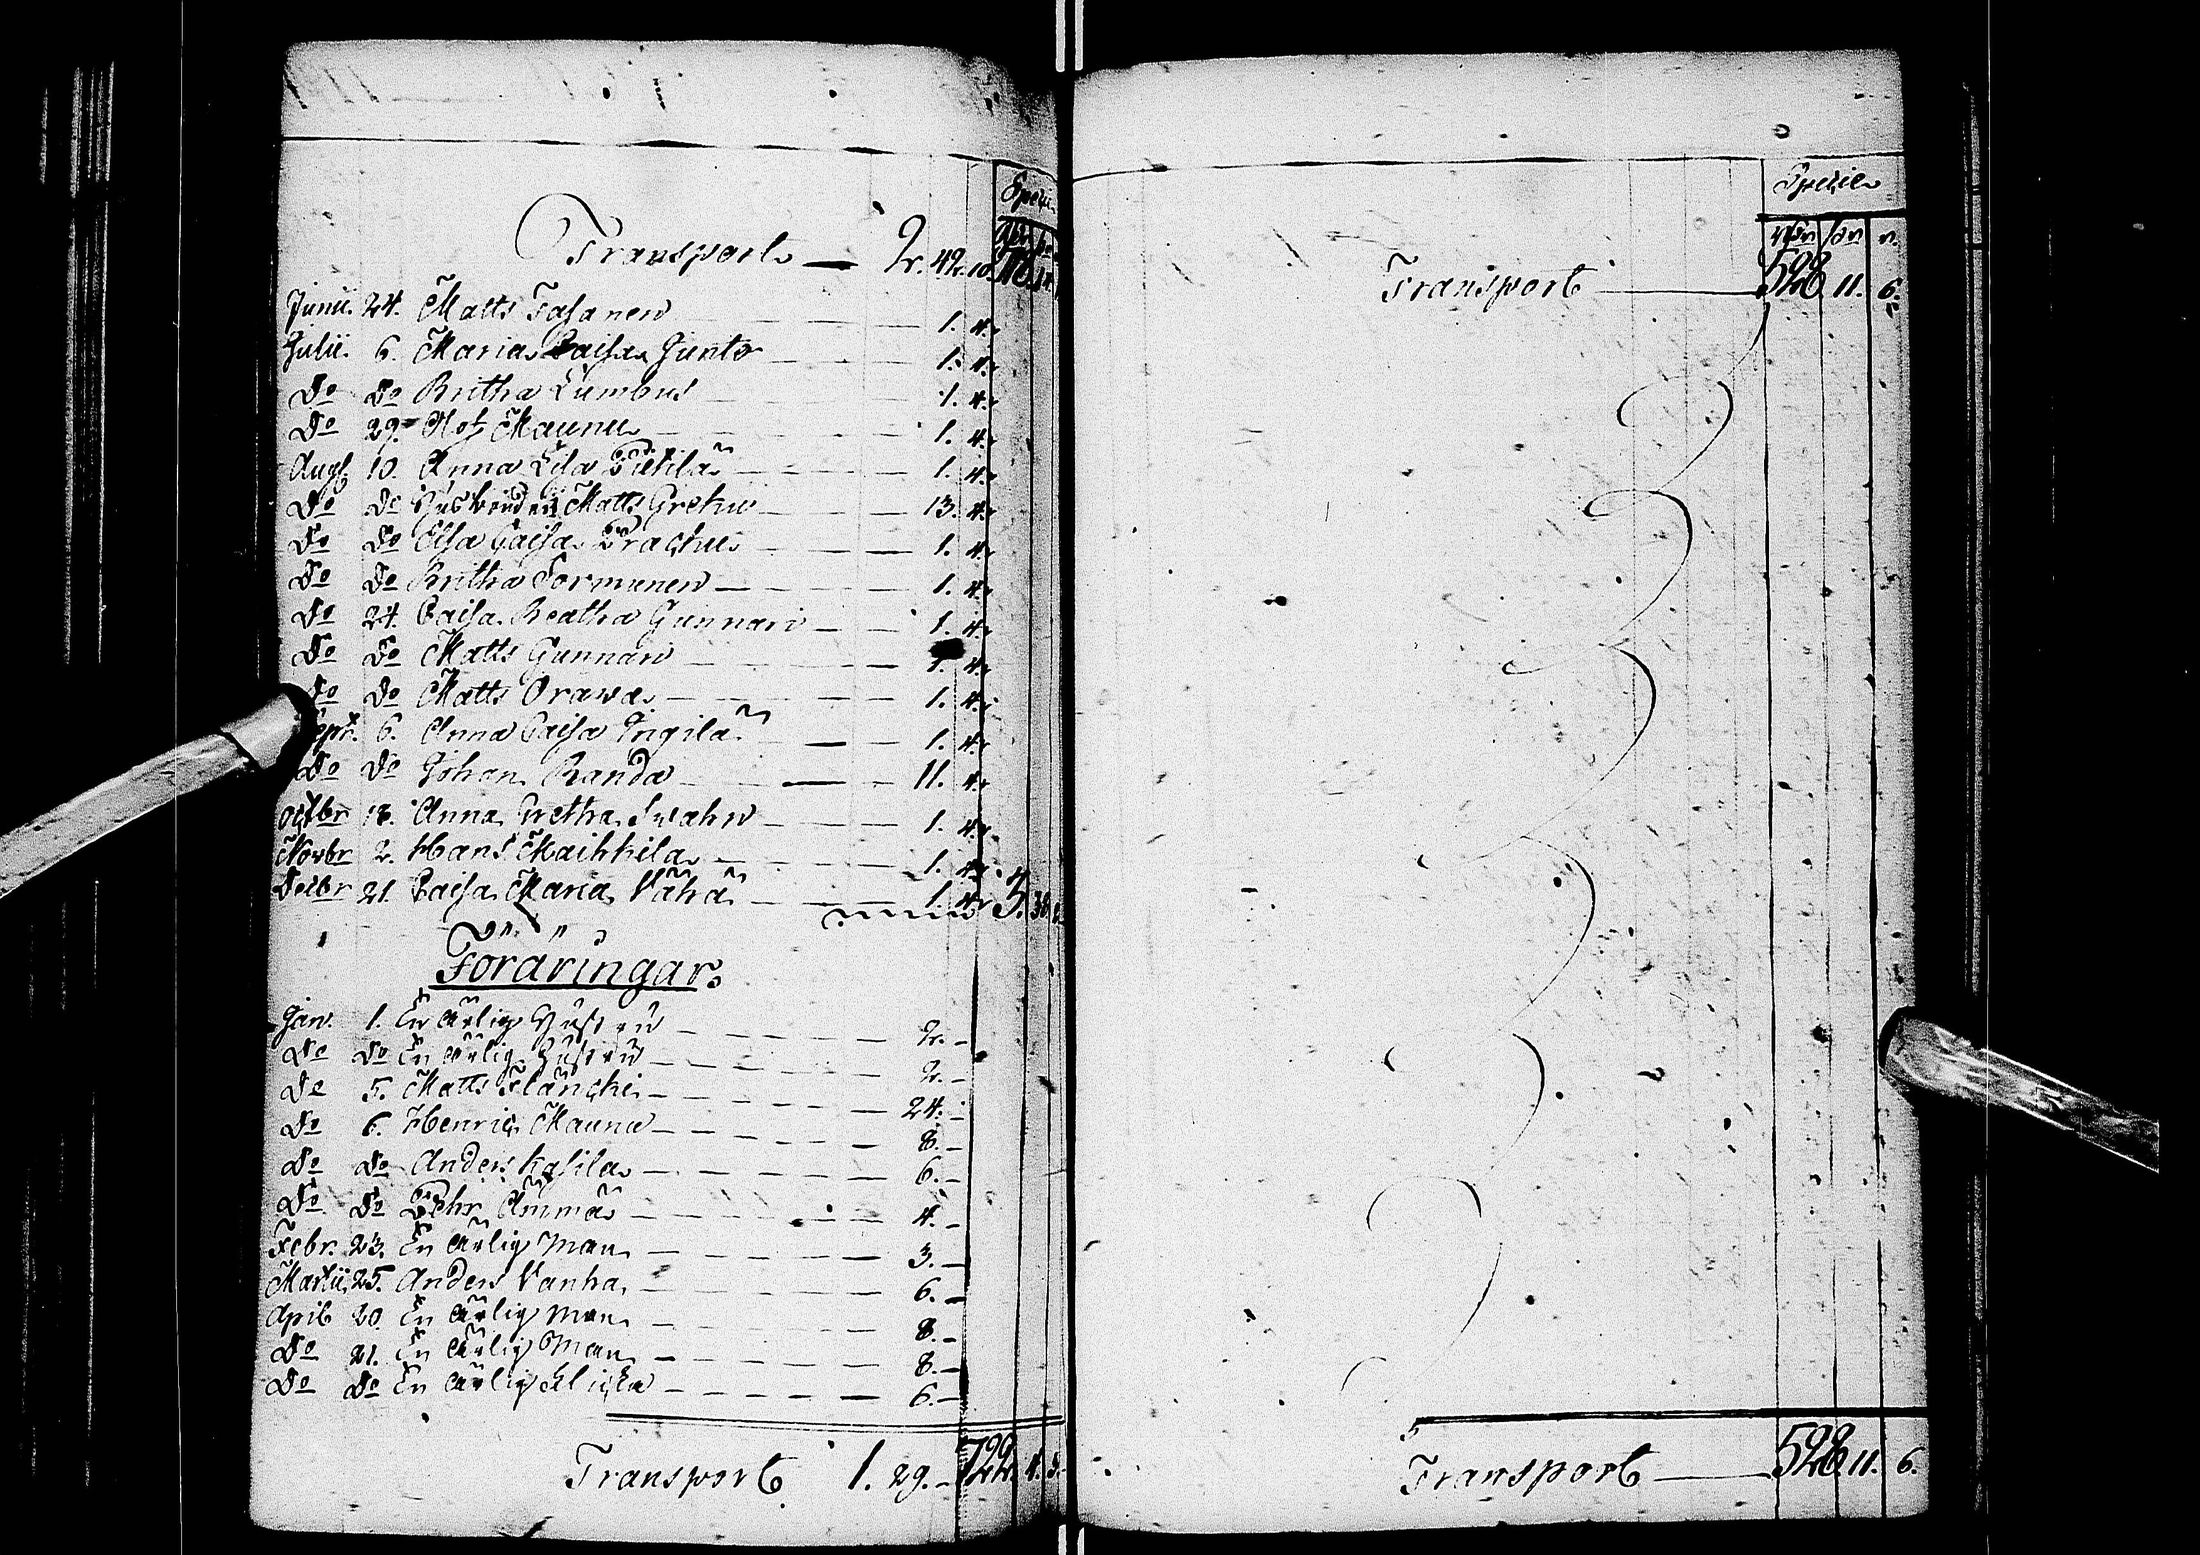 Specie
Transport — 2. 42. 10.
Junii. 24. Matts Fasanen 1. 4.
Julii. 6. Maria Caisa Junto 1. 4.
Do Do Britha Lumbus 1. 4.
Do 29. Olof Maunu 1. 4.
Aug. 10. Anna Lisa Pietilä 1. 4.
Do Do Matts Grekus 13. 4.
Do Do Elsa Caisa Brachus 1. 4.
Do Do Britha Tormunen 1. 4.
Do 24. Caisa Beatha Gunnari 1. 4.
Do Do Matts Gunnari 1. 4.
Do Do Matts Orawa 1. 4.
6. Anna Caisa Ingilä 1. 4.
Do Do Johan Randa 11. 4.
Octbr 18. Anna Gretha Swahn 1. 4.
Novbr 2. Hans Maikkila 1. 4.
Decbr 21. Caisa Maria Vähä 1. 4. 5. 38.
Föräringar
Jan. 1. En ärlig Hustru 2. –
Do Do En ärlig Hustru 2. –
Do 5. Matts Flänchi 24. –
Do 6. Henric Maunu 8. –
Do Do Anders Kasila 6. –
Do Do Pehr Ämmä 4. –
Febr. 23. En ärlig Man 3. –
Martii 25. Anders Vanha 6. –
April 20. En ärlig Man 8. –
Do 21. En ärlig Man 8. –
Do Do En ärlig Flicka 6. –
Transport 1. 29. – 722. 4. 3.
Specie
Transport 528 11. 6.
Transport 528 11. 6.